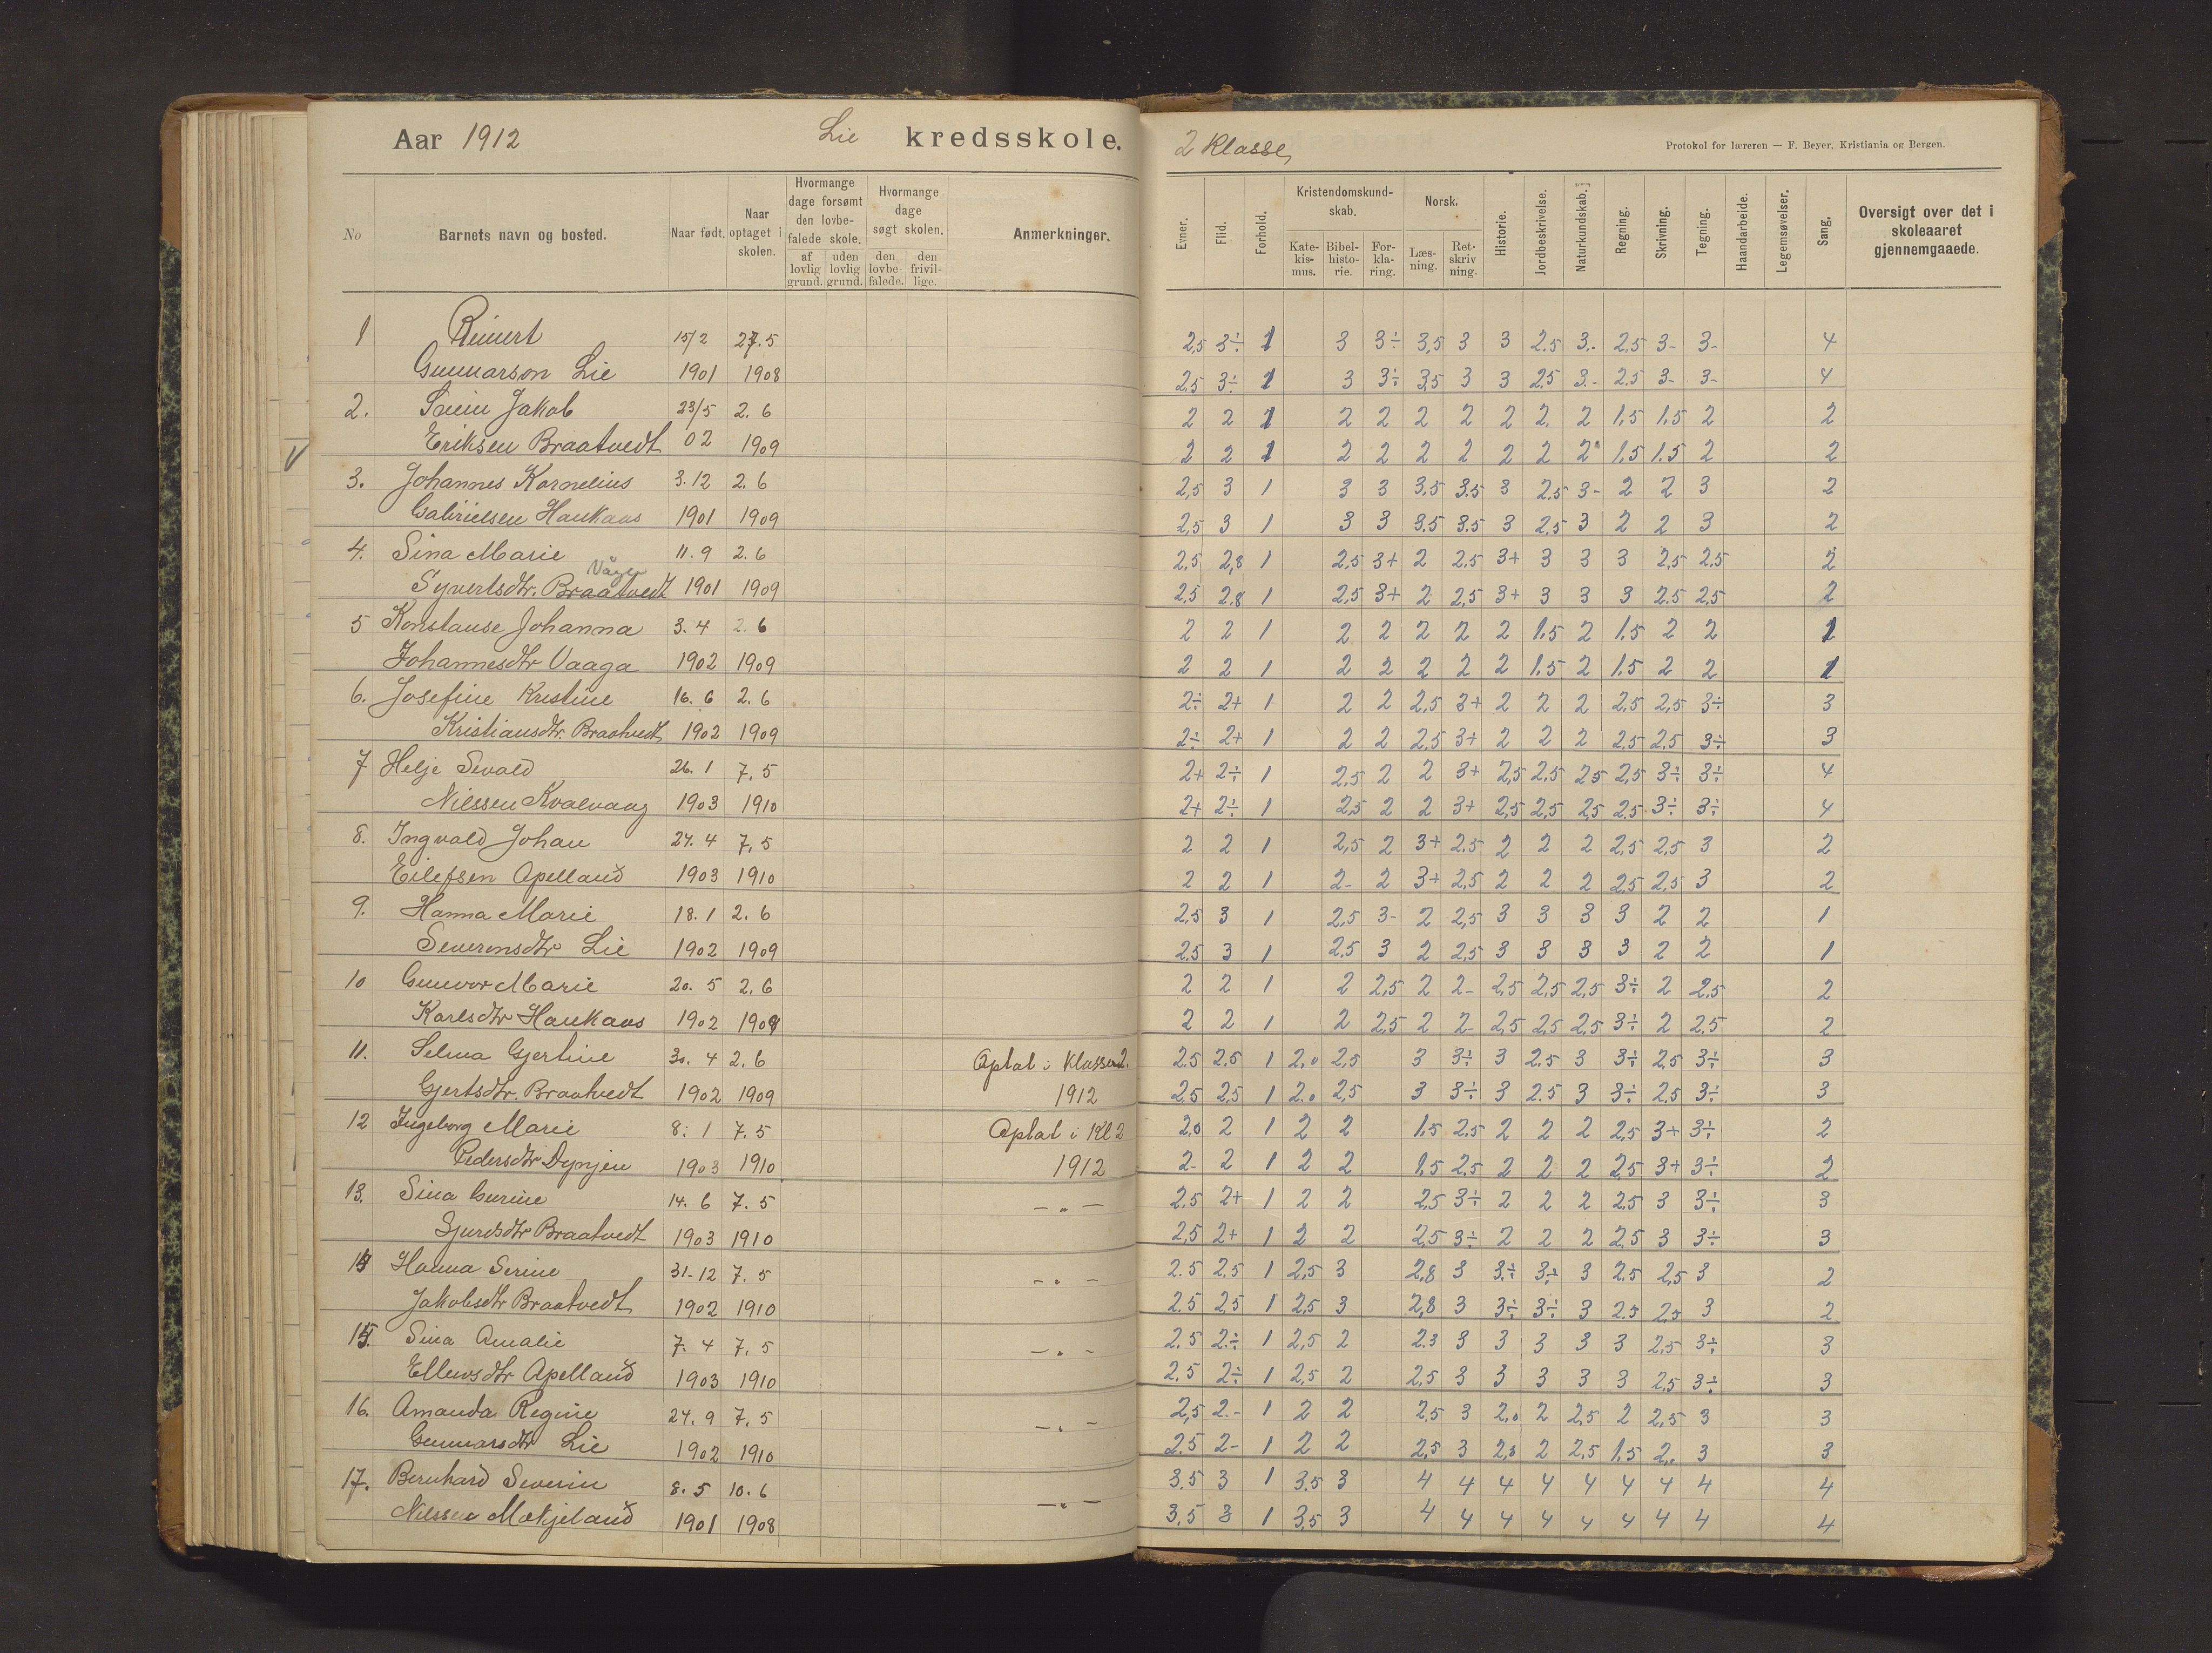 Aar 1912 Lie kredsskole.
2 Klasse
Protokol for læreren — F. Beyer, Kristiania og Bergen.
No Barnets navn og bosted. Naar født. Naar optaget i skolen. Hvormange dage forsømt den lovbefalede skole. af lovlig grund. uden lovlig grund. Hvormange dage søgt skolen. den lovbefalede. den frivillige. Anmerkninger.
Evner. Flid. Forhold. Kristendomskundskab. Katekismus. Bibelhistorie. Forklaring. Norsk. Læsning. Retskrivning. Historie. Jordbeskrivelse. Naturkundskab. Regning. Skrivning. Tegning. Haandarbeide. Legemsøvelser. Sang. Oversigt over det i skoleaaret gjennemgaaede.
1 Reinert 15/2 27.5 2,5 3÷ 1 3 3÷ 3,5 3 3 2.5 3.- 2,5 3- 3- 4
Gunnarson Lie 1901 1908 2,5 3÷ 1 3 3÷ 3,5 3 3 2,5 3.- 2.5 3- 3- 4
2. Jakob 23/5 2.6 2 2 1 2 2 2 2 2 2. 2 1,5 1.5 2 2
Eriksen Braatvedt 02 1909 2 2 1 2 2 2 2 2 2 2 1.5 1.5 2 2
3. Johannes Kornelius 3.12 2.6 2,5 3 1 3 3 3,5 3.5 3 2.5 3- 2 2 3 2
Gabrielsen Haukaas 1901 1909 2,5 3 1 3 3 3.5 3.5 3 2.5 3 2 2 3 2
4. Sina Marie 11.9 2.6 2,5 2,8 1 2,5 3+ 2 2.5 3+ 3 3 3 2,5 2,5 2
Vågen
Syvertsdtr. Braatvedt 1901 1909 2,5 2.8 1 2,5 3+ 2 2,5 3+ 3 3 3 2.5 2,5 2
5 Konstanse Johanna 3.4 2.6 2 2 1 2 2 2 2 2 1.5 2 1.5 2 2 1
Johannesdtr Vaaga 1902 1909 2 2 1 2 2 2 2 2 1.5 2 1.5 2 2 1
6. Josefine Kristine 16.6 2.6 2÷ 2+ 1 2 2 2,5 3+ 2 2 2 2,5 2,5 3÷ 3
Kristiansdtr. Braatvedt 1902 1909 2÷ 2+ 1 2 2 2,5 3+ 2 2 2 2.5 2.5 3÷ 3
7 Helje Sevald 26.1 7.5 2+ 2÷ 1 2,5 2 2 3+ 2,5 2,5 2,5 2,5 3÷ 3÷ 4
Nilssen Kvalvaag 1903 1910 2+ 2÷ 1 2,5 2 2 3+ 2,5 2,5 2,5 2.5 3÷ 3÷ 4
8. Ingvald Johan 24.4 7.5 2 2 1 2,5 2 3+ 2.5 2 2 2 2,5 2,5 3 2
Eilefsen Apelland 1903 1910 2 2 1 2- 2 3+ 2,5 2 2 2 2,5 2,5 3 2
9. Hanna Marie 18.1 2.6 2,5 3 1 2,5 3- 2 2,5 3 3 3 3 2 2 1
Severonsdtr Lie 1902 1909 2.5 3 1 2.5 3 2 2.5 3 3 3 3 2 2 1
10 Gunvor Marie 20.5 2.6 2 2 1 2 2,5 2 2- 2,5 2,5 2,5 3÷ 2 2,5 2
Karlsdtr Haukaas 1902 1909 2 2 1 2 2.5 2 2- 2,5 2,5 2,5 3÷ 2 2.5 2
11. Selma Gjertine 30.4 2.6 Optat i klassen 2. 2.5 2.5 1 2.0 2,5 3 3÷ 3 2.5 3 3÷ 2,5 3÷ 3
Gjertsdtr. Braatvedt 1902 1909 1912 2,5 2,5 1 2.0 2,5 3 3÷ 3 2.5 3 3÷ 2,5 3÷ 3
12 Ingeborg Marie 8.1 7.5 Optat i Kl 2 2.0 2 1 2 2 1.5 2.5 2 2 2 2,5 3+ 3÷ 2
Pedersdtr Dynjen 1903 1910 1912 2- 2 1 2 2 1.5 2.5 2 2 2 2,5 3+ 3÷ 2
13. Sina Gurine 14.6 7.5 — „ — 2,5 2+ 1 2 2 2,5 3÷ 2 2 2 2,5 3 3÷ 3
Sjursdtr Braatvedt 1903 1910 2,5 2+ 1 2 2 2,5 3÷ 2 2 2 2.5 3 3÷ 3
14 Hanna Serine 31-12 7.5 — „ — 2.5 2,5 1 2,5 3 2,8 3 3÷ 3÷ 3 2.5 2,5 3 2
Jakobsdtr Braatvedt 1902 1910 2.5 2,5 1 2,5 3 2,8 3 3÷ 3÷ 3 2.5 2,5 3 2
15. Sina Amalie 7.4 7.5 — „ — 2.5 2÷ 1 2,5 2 2.3 3 3 3 3 3 2,5 3÷ 3
Apelland 1903 1910 2.5 2÷ 1 2,5 2 2,5 3 3 3 3 3 2,5 3÷ 3
16. Amanda Regine 24.9 7.5 — „ — 2,5 2.- 1 2 2 2.5 3 2.0 2 2,5 2 2,5 3 3
Gunnarsdtr Lie 1902 1910 2.5 2- 1 2 2 2,5 3 2,8 2 2,5 1.5 2. 3 3
17. Bernhard Severin 8.5 10.6 — „ — 3.5 3 1 3.5 3 4 4 4 4 4 4 4 4 4
Nilssen Mækjeland 1901 1908 3,5 3 1 3,5 3 4 4 4 4 4 4 4 4 4